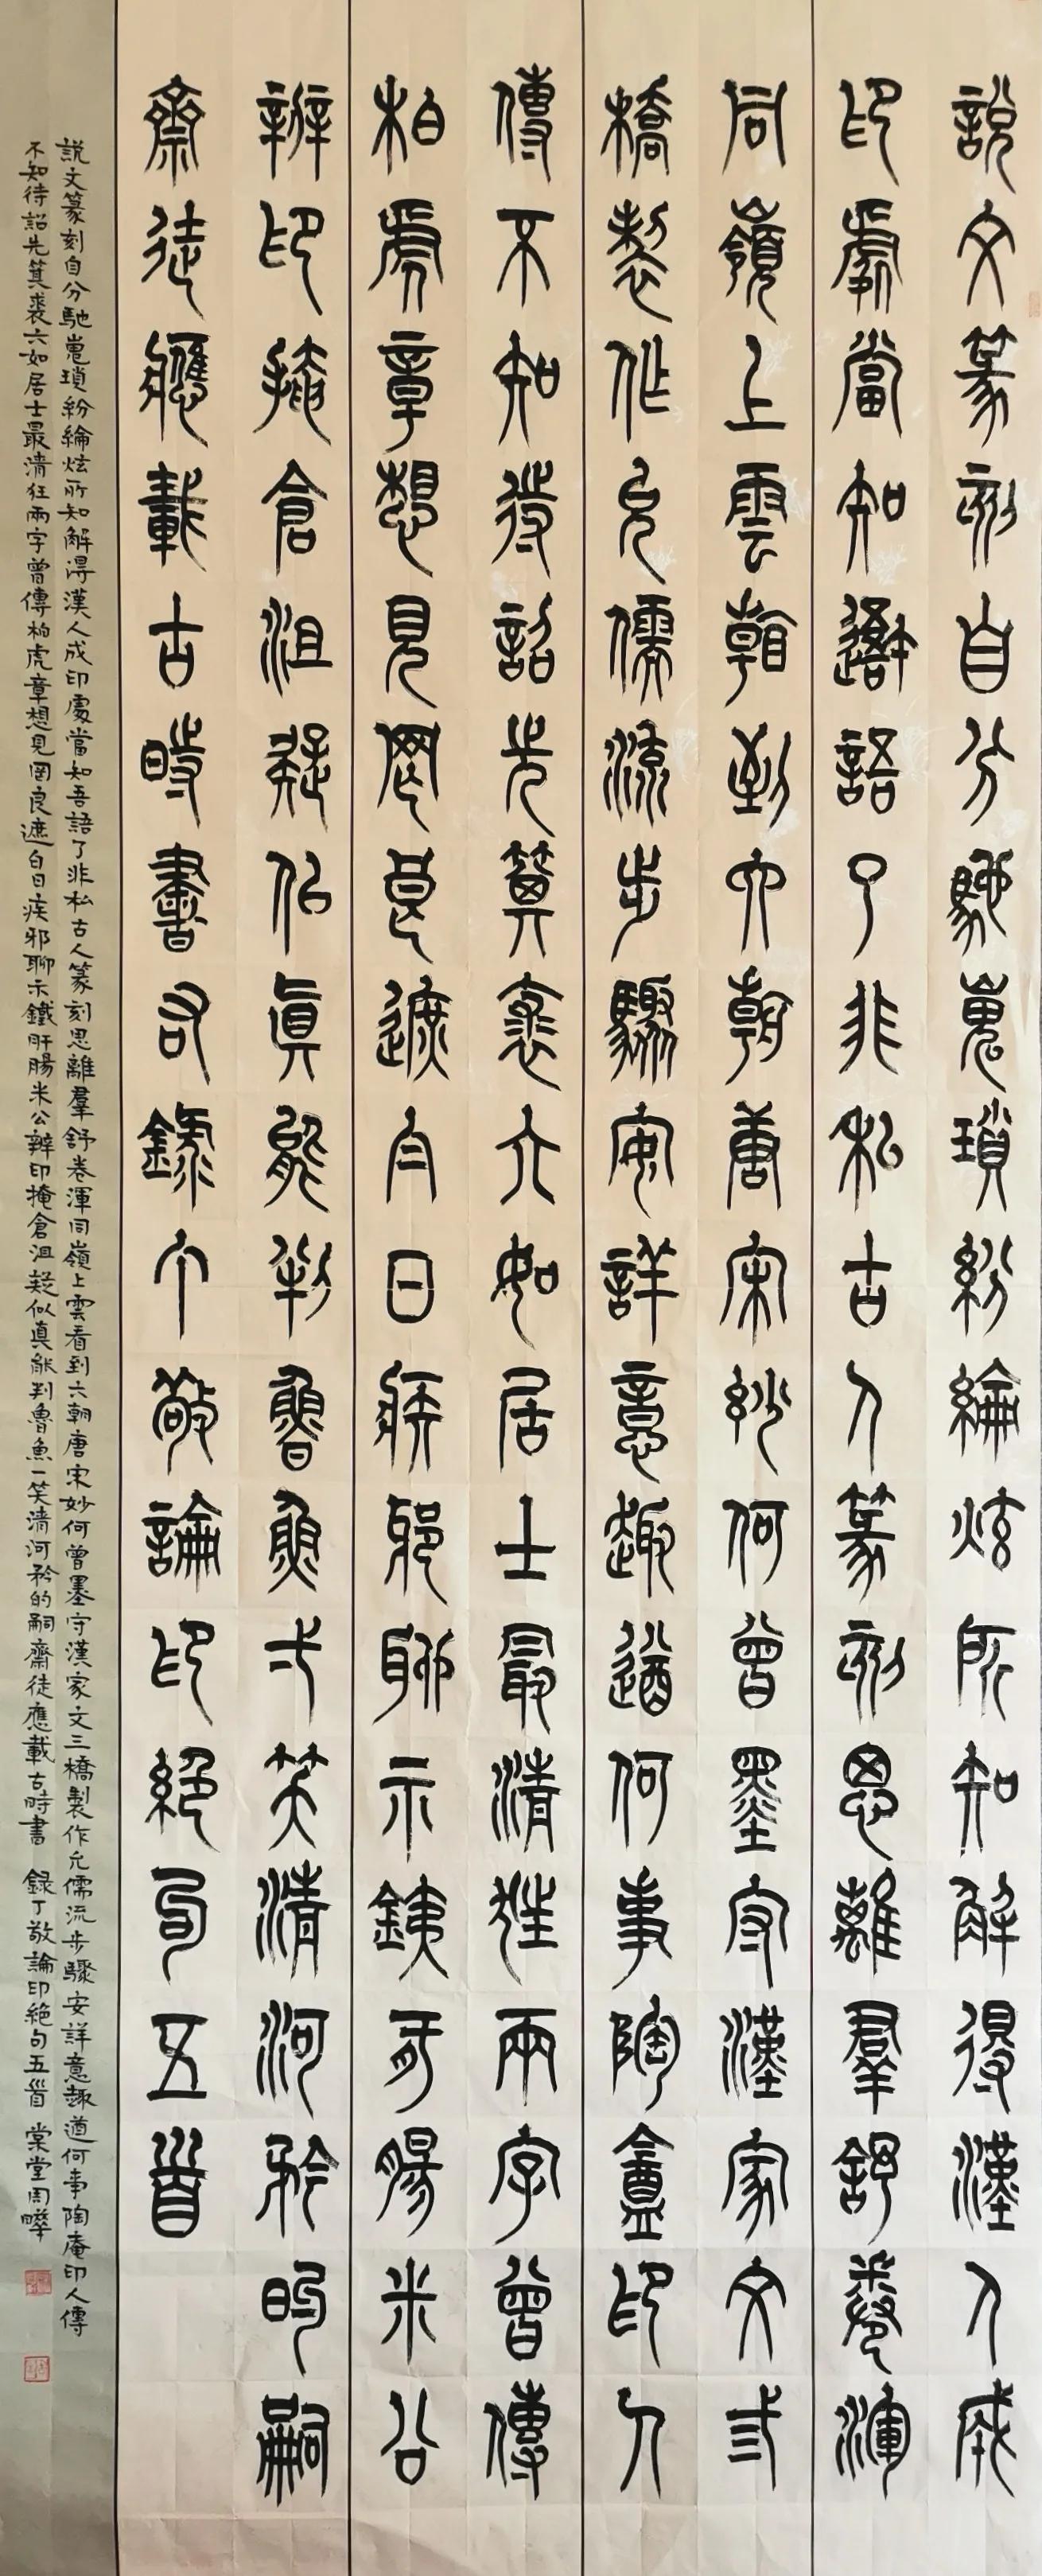 說文篆刻自分馳嵬瑣紛綸炫所知解得漢人成
印處當知吾語了非私古人篆刻思離羣舒卷渾
同嶺上雲看到六朝唐宋妙何曾墨守漢家文三
橋製作允儒流步驟安詳意趣遒何事陶盦印人
傳不知待詔先箕裘六如居士最清狂兩字曾傳
柏虎章想見罔良遮白日疾邪聊示鐵肝腸米公
辨印掩倉沮疑似眞能判魯魚弌笑清河矜的嗣
齋徒應載古時書右錄丁敬論印絕句五首
說文篆刻自分馳嵬瑣紛綸炫所知解得漢人成印處當知吾語了非私古人篆刻思離羣舒卷渾同嶺上雲看到六朝唐宋妙何曾墨守漢家文三橋製作允儒流步驟安詳意趣遒何事陶庵印人傳
不知待詔先箕裘六如居士最清狂兩字曾傳柏虎章想見罔良遮白日疾邪聊示鐵肝腸米公辨印掩倉沮疑似真能判魯魚一笑清河矜的嗣齋徒應載古時書 錄丁敬論印絕句五首 棠堂周